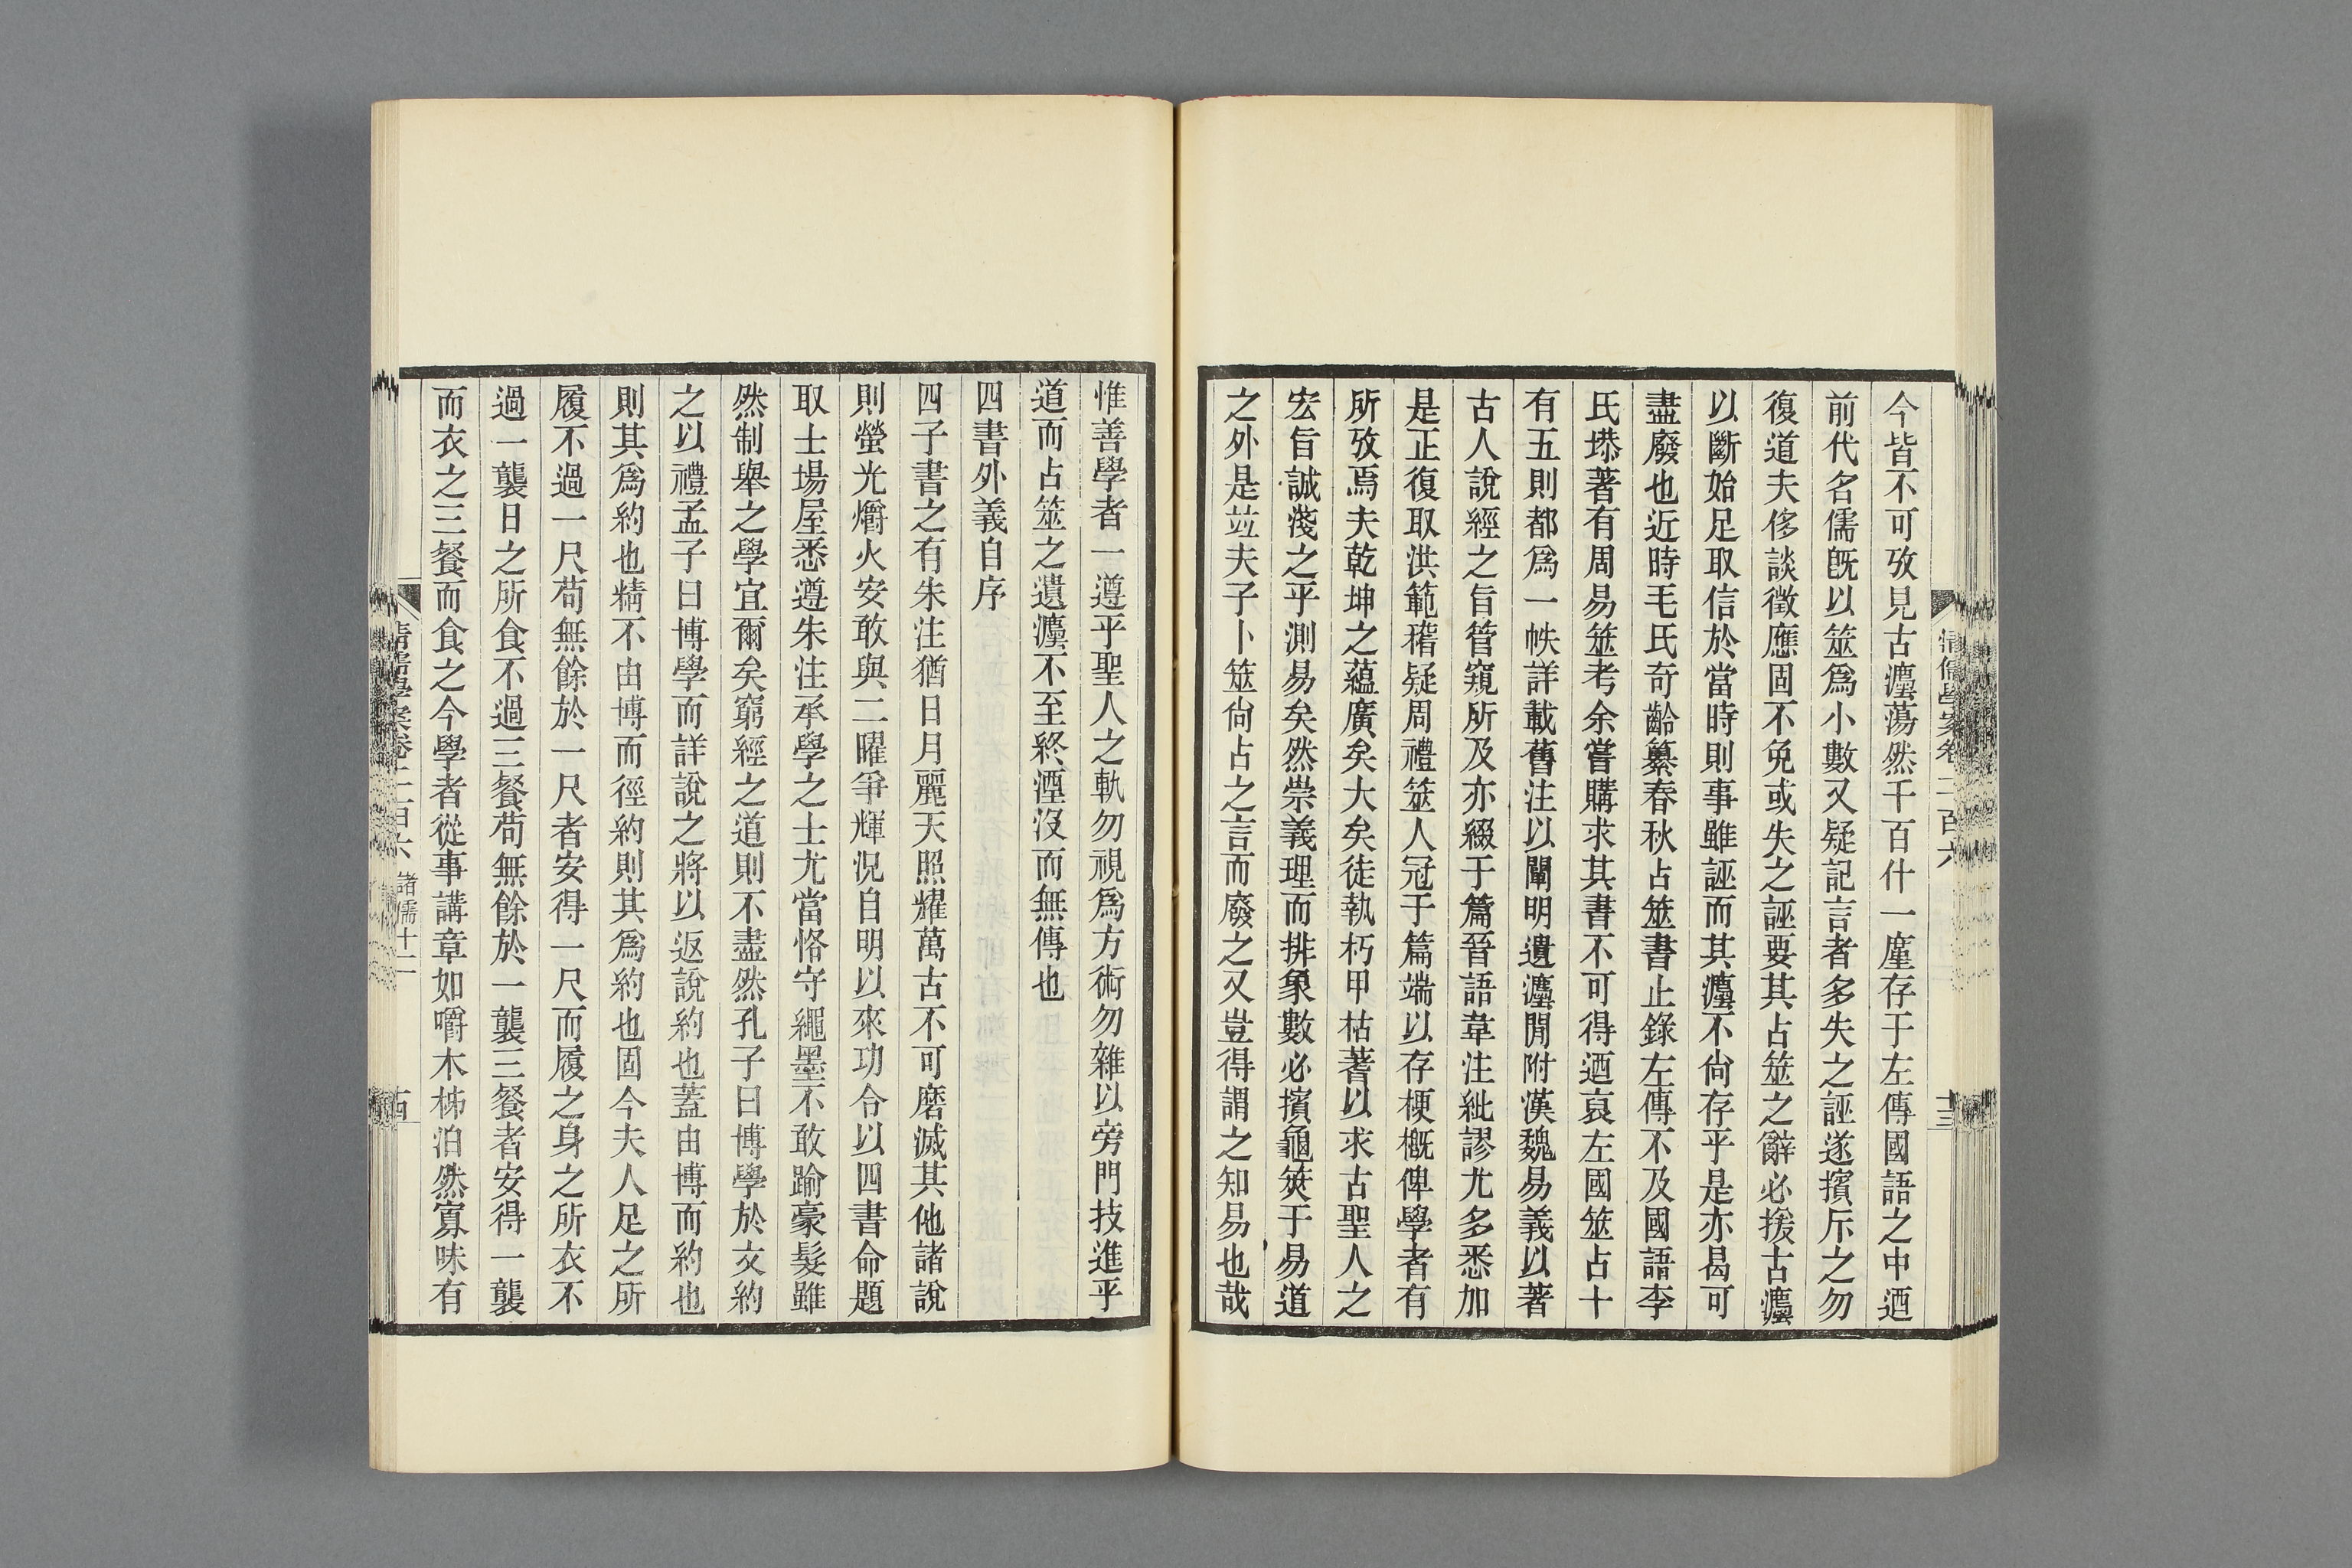 今皆不可攷見古灋蕩然千百什一廑存于左傳國語之中迺
前代名儒旣以筮爲小數又疑記言者多失之誣遂擯斥之勿
復道夫侈談徵應固不免或失之誣要其占筮之辭必援古灋
以斷始足取信於當時則事雖誣而其灋不尙存乎是亦曷可
盡廢也近時毛氏奇齡纂春秋占筮書止錄左傳不及國語李
氏塨著有周易筮考余嘗購求其書不可得迺裒左國筮占十
有五則都爲一帙詳載舊注以闡明遺灋閒附漢魏易義以著
古人說經之旨管窺所及亦綴于篇晉語韋注紕謬尤多悉加
是正復取洪範稽疑周禮筮人冠于篇端以存梗槪俾學者有
所攷焉夫乾坤之蘊廣矣大矣徒執朽甲枯蓍以求古聖人之
宏旨誠淺之乎測易矣然崇義理而排象數必擯龜筴于易道
之外是竝夫子卜筮尙占之言而廢之又豈得謂之知易也哉
清儒學案卷二百六
十三
惟善學者一遵乎聖人之軌勿視爲方術勿雜以旁門技進乎
道而占筮之遺灋不至終湮沒而無傳也
四書外義自序
四子書之有朱注猶日月麗天照耀萬古不可磨滅其他諸說
則螢光爝火安敢與二曜爭輝況自明以來功令以四書命題
取士場屋悉遵朱注承學之士尤當恪守繩墨不敢踰豪髮雖
然制舉之學宜爾矣窮經之道則不盡然孔子曰博學於文約
之以禮孟子曰博學而詳說之將以返說約也蓋由博而約也
則其爲約也精不由博而徑約則其爲約也固今夫人足之所
履不過一尺苟無餘於一尺者安得一尺而履之身之所衣不
過一襲日之所食不過三餐苟無餘於一襲三餐者安得一襲
而衣之三餐而食之今學者從事講章如嚼木柹泊然寡味有
清儒學案卷二百六 諸儒十二